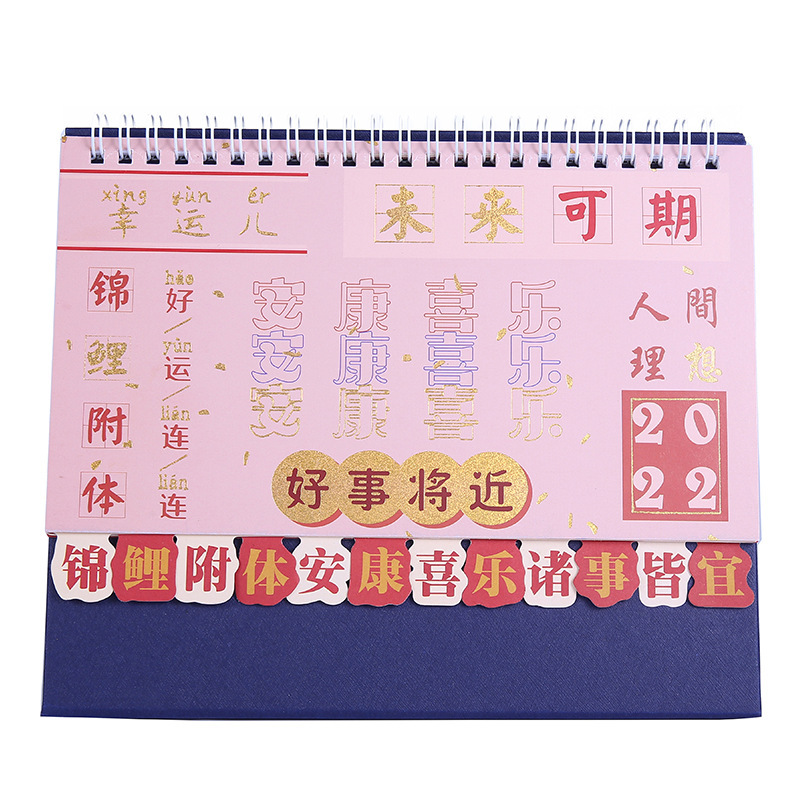 xìng yùn ér
幸运儿
未来可期
锦鲤附体
hǎo
好/
yùn
运/
lián
连/
lián
连
安康喜乐
安康喜乐
安康喜乐
人間
理想
20
22
好事将近
锦鲤附体安康喜乐诸事皆宜